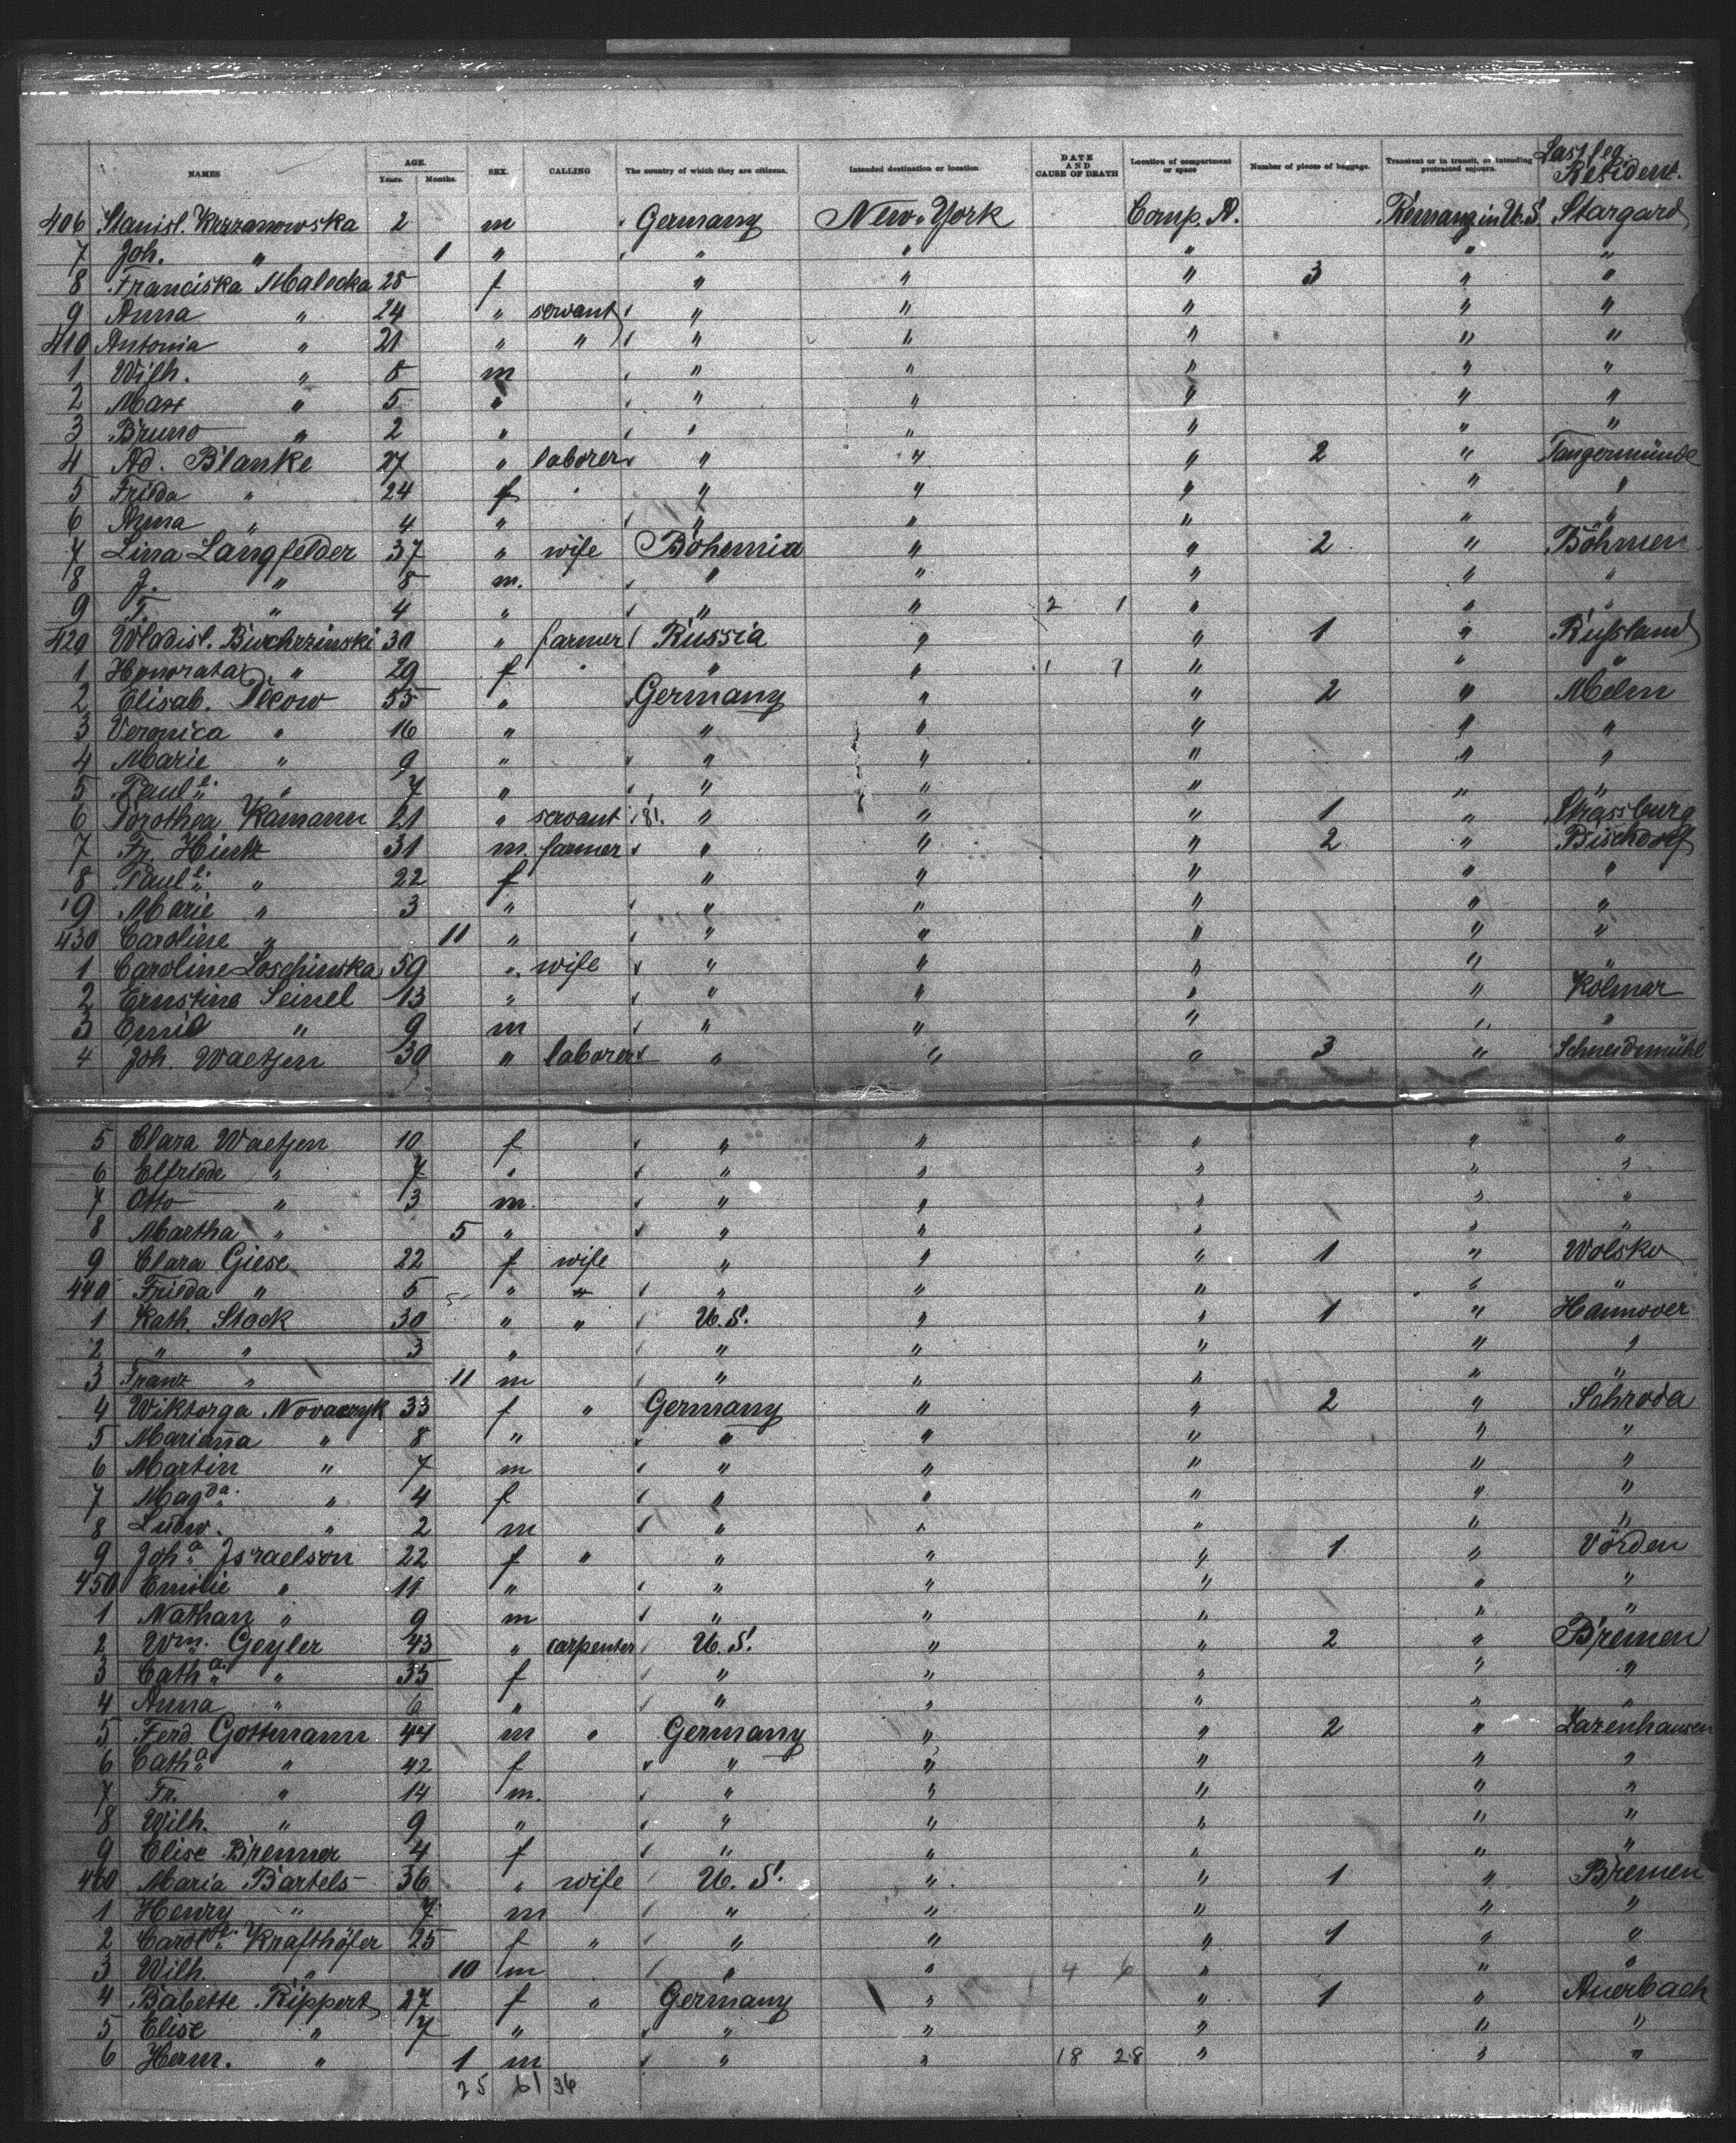 Last leg. Resident.
NAMES AGE. Years. Months. SEX. CALLING The country of which they are citizens. Intended destination or location. DATE AND CAUSE OF DEATH Location of compartment or space Number of pieces of baggage. Transient or in transit, or intending protracted sojourn.
406 Stanisl. Krzzanowska 2 m Germany New-York Comp. A. Remang in U.S. Stargard
7 Joh. " 1 " " " " " "
8 Franciska Malecka 25 f " " " 3 " "
9 Anna " 24 " servant " " " " "
410 Antonia " 21 " " " " " " "
1 Wilh. " 8 m " " " " "
2 Max " 5 " " " " " "
3 Bruno " 2 " " " " " "
4 Ad. Blanke 27 " laborer " " " 2 " Tangermünde
5 Frieda " 24 f " " " " "
6 Anna " 4 " " " " " "
7 Lina Langfelder 37 " wife Bohemia " " 2 " Böhmen
8 J. " 8 m. " " " " "
9 T. " 4 " " " 2 1 " " "
420 Wladisl. Buchrzinski 30 " farmer Russia " " 1 " Rußland
1 Honorata " 29 f " " 1 7 " " "
2 Elisab. 55 " Germany " " 2 " Meln
3 Veronica " 16 " " " " " "
4 Marie " 9 " " " " " "
5 Paule. " 7 " " " " " "
6 Dorothea Kamann 21 " servant 8. " " " 1 " Strassburg
7 Fr. Hintz 31 m. farmer " " " 2 " Bischdorf
8 Paule. " 22 f " " " " "
9 Marie " 3 " " " " " "
430 Caroline " 11 " " " " " "
1 Caroline Loschinska 59 " wife " " " " "
2 Ernstina Seinel 13 " " " " " Kolmar
3 Emil " 9 m " " " " "
4 Joh. Waetjen 30 " laborer " " " 3 " Schneidemühl
5 Clara Waetjen 10 f " " " " "
6 Elfriede " 7 " " " " " "
7 Otto " 3 m. " " " " "
8 Martha " 5 " " " " " "
9 Clara Giese 22 f wife " " " 1 " Wolsko
440 Frieda " 5 " " " " " " "
1 Kath. Stock 30 " " U.S. " " 1 " Hannover
2 " " 3 " " " " " "
3 Franz " 11 m " " " " "
4 Wiktorga Novaczyk 33 f " Germany " " 2 " Schroda
5 Marianna " 8 " " " " " "
6 Martin " 7 m " " " " "
7 Magda. " 4 f " " " " "
8 Ludw. " 2 m " " " " "
9 Joha. Israelson 22 f " " " " 1 " Vörden
450 Emilie " 11 " " " " " "
1 Nathan " 9 m " " " " "
2 Wm. Geyler 43 " carpenter U.S. " " 2 " Bremen
3 Catha. " 35 f " " " " "
4 Anna " 6 " " " " " "
5 Ferd. Gottmann 44 m " Germany " " 2 " Lazenhausen
6 Catha. " 42 f " " " " "
7 Fr. " 14 m. " " " " "
8 Wilh. " 9 " " " " " "
9 Elise Brenner 4 f " " " " "
460 Maria Bartels 36 " wife U.S. " " 1 " Bremen
1 Henry " 7 m " " " " "
2 Krafthöfer 25 f " " " " 1 " "
3 Wilh. " 10 m " " 4 6 " " "
4 Babette Rippert 27 f " Germany " " 1 " Auerbach
5 Elise " 7 " " " " " "
6 Herm. " 1 m " " 18 28 " " "
25 61 36